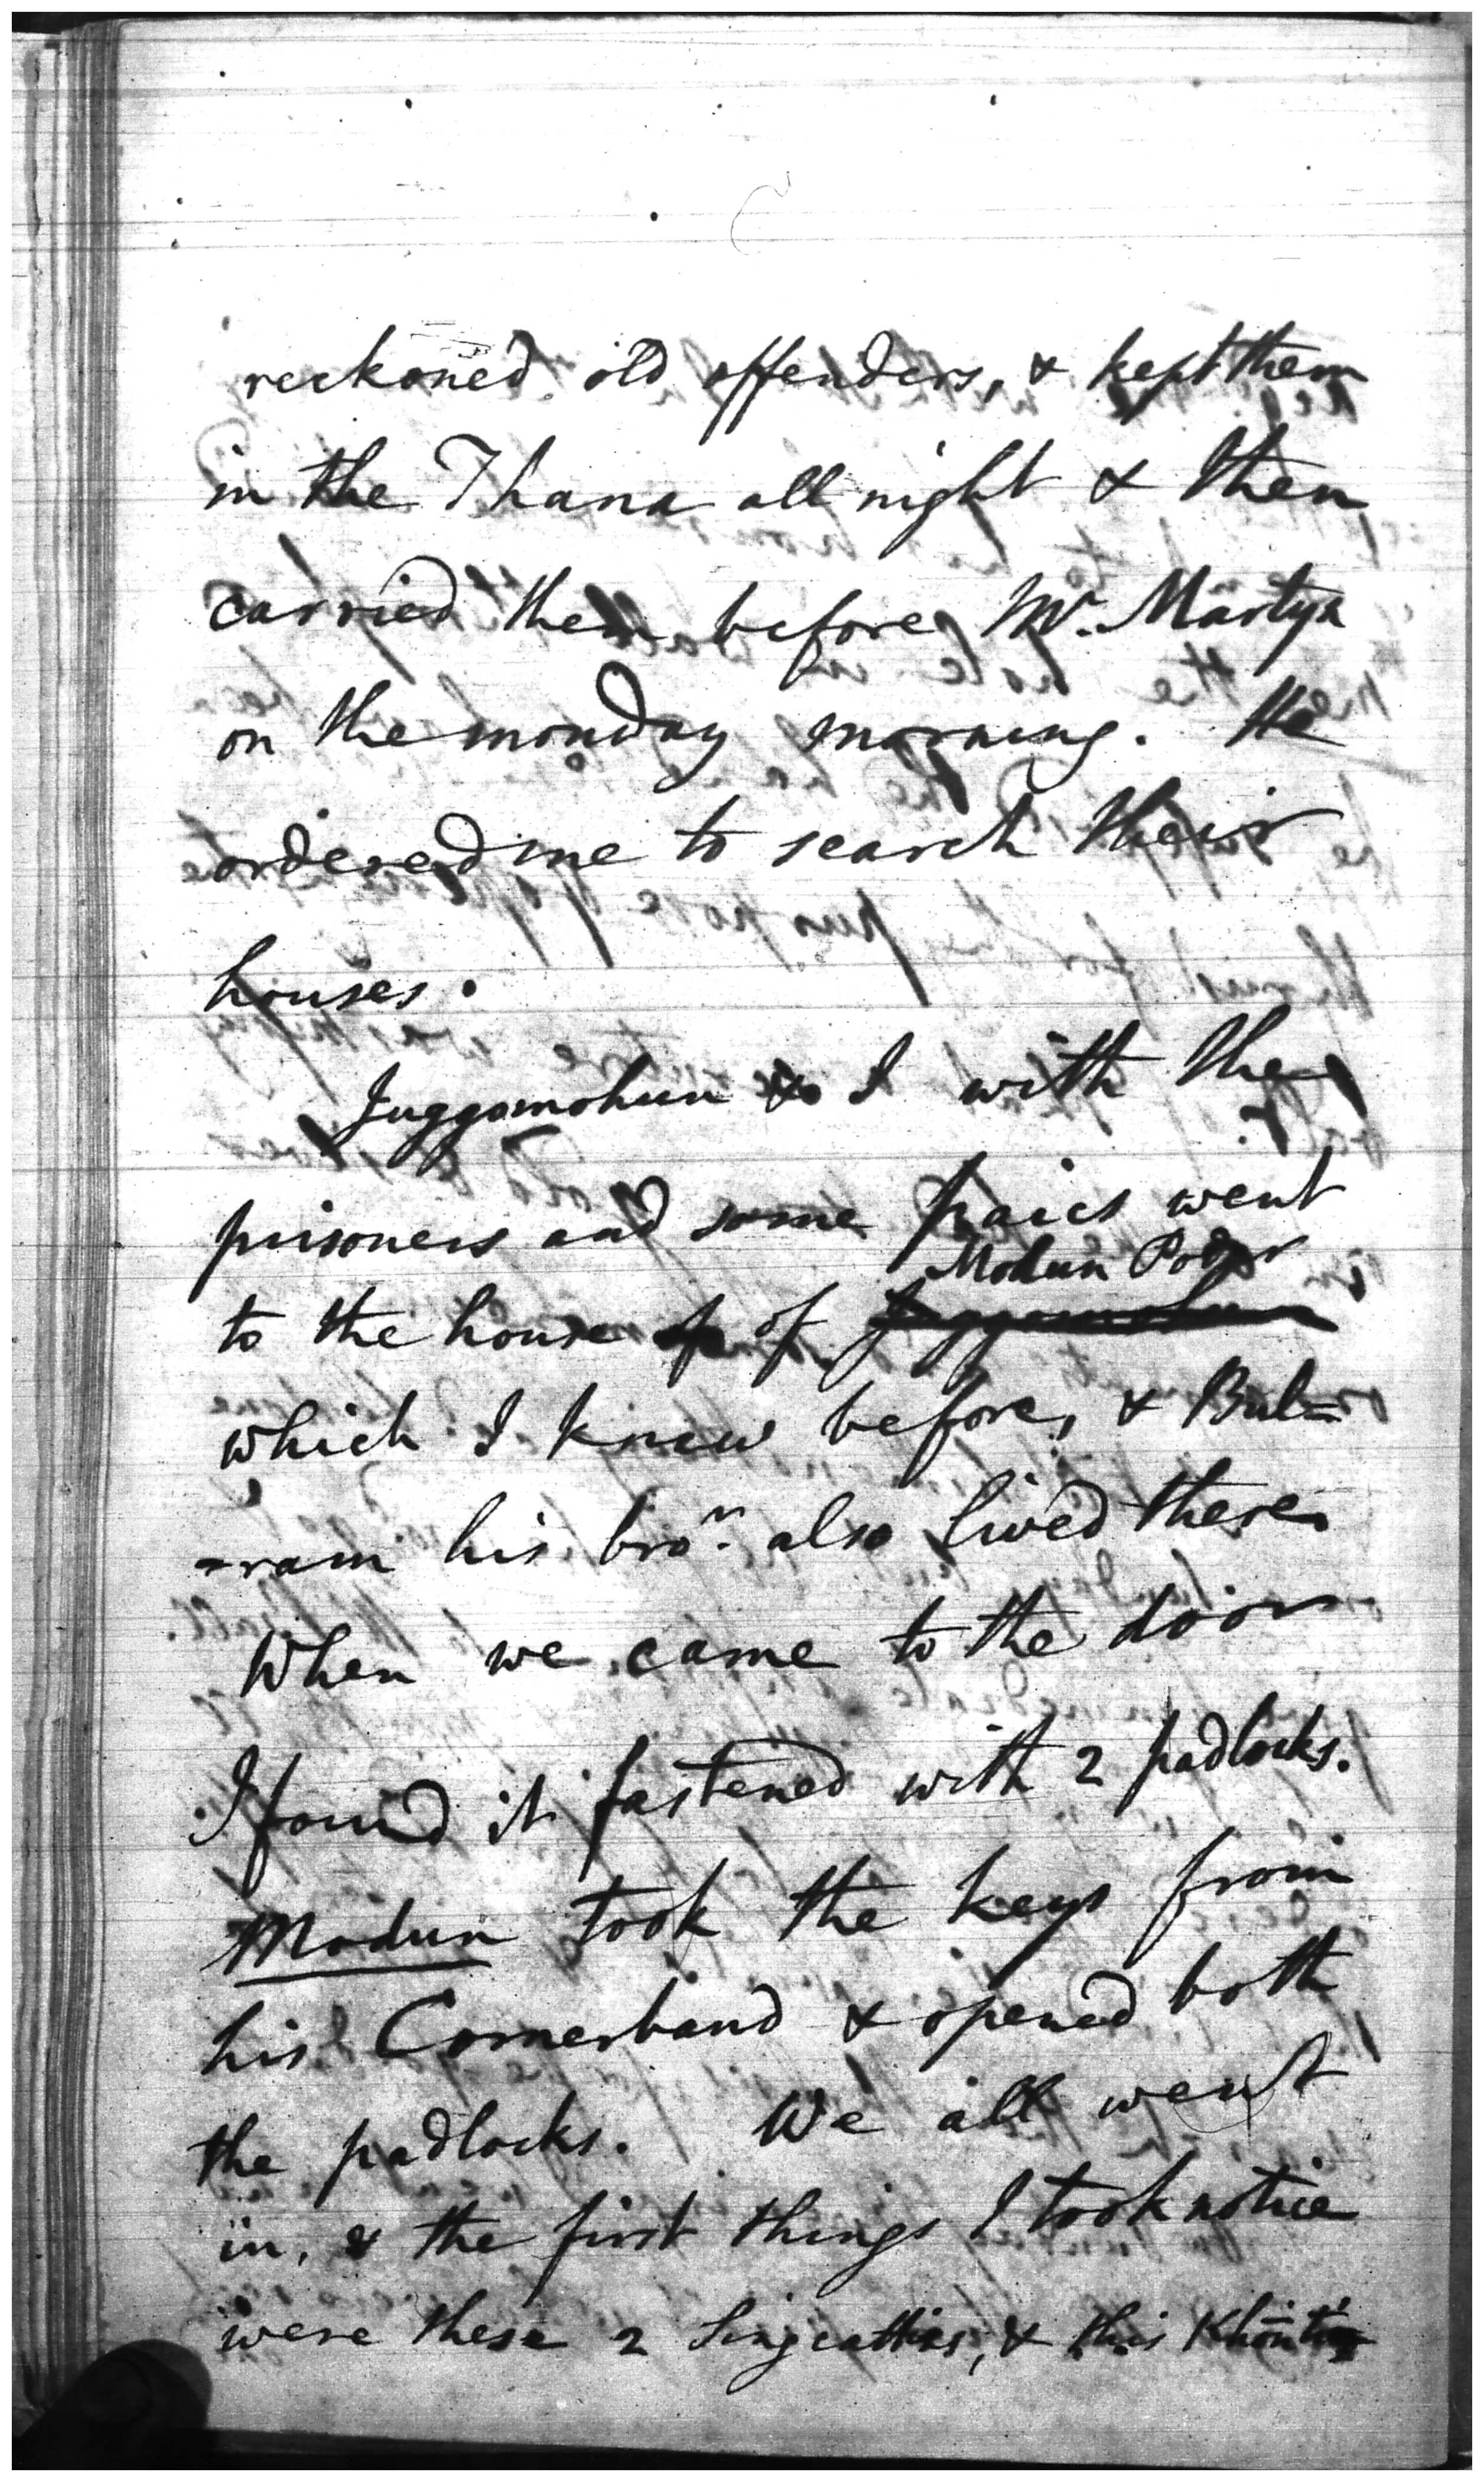 reckoned old offenders, & kept them
in the Thana all night & then
carried them before Mr. Martyn
on the monday morning. He
ordered me to search their
houses.
Juggomohun & I with the
prisoners and some paics went
Modun Podar
to the house of of Juggomohun
which I knew before, & Bul=
=ram his bror. also lived there
When we came to the door
I found it fastened with 2 padlocks.
Modun took the keys from
his Comerband & opened both
the padlocks. We all went
in, & the first things I took notice
were these 2 Singcatties, & this